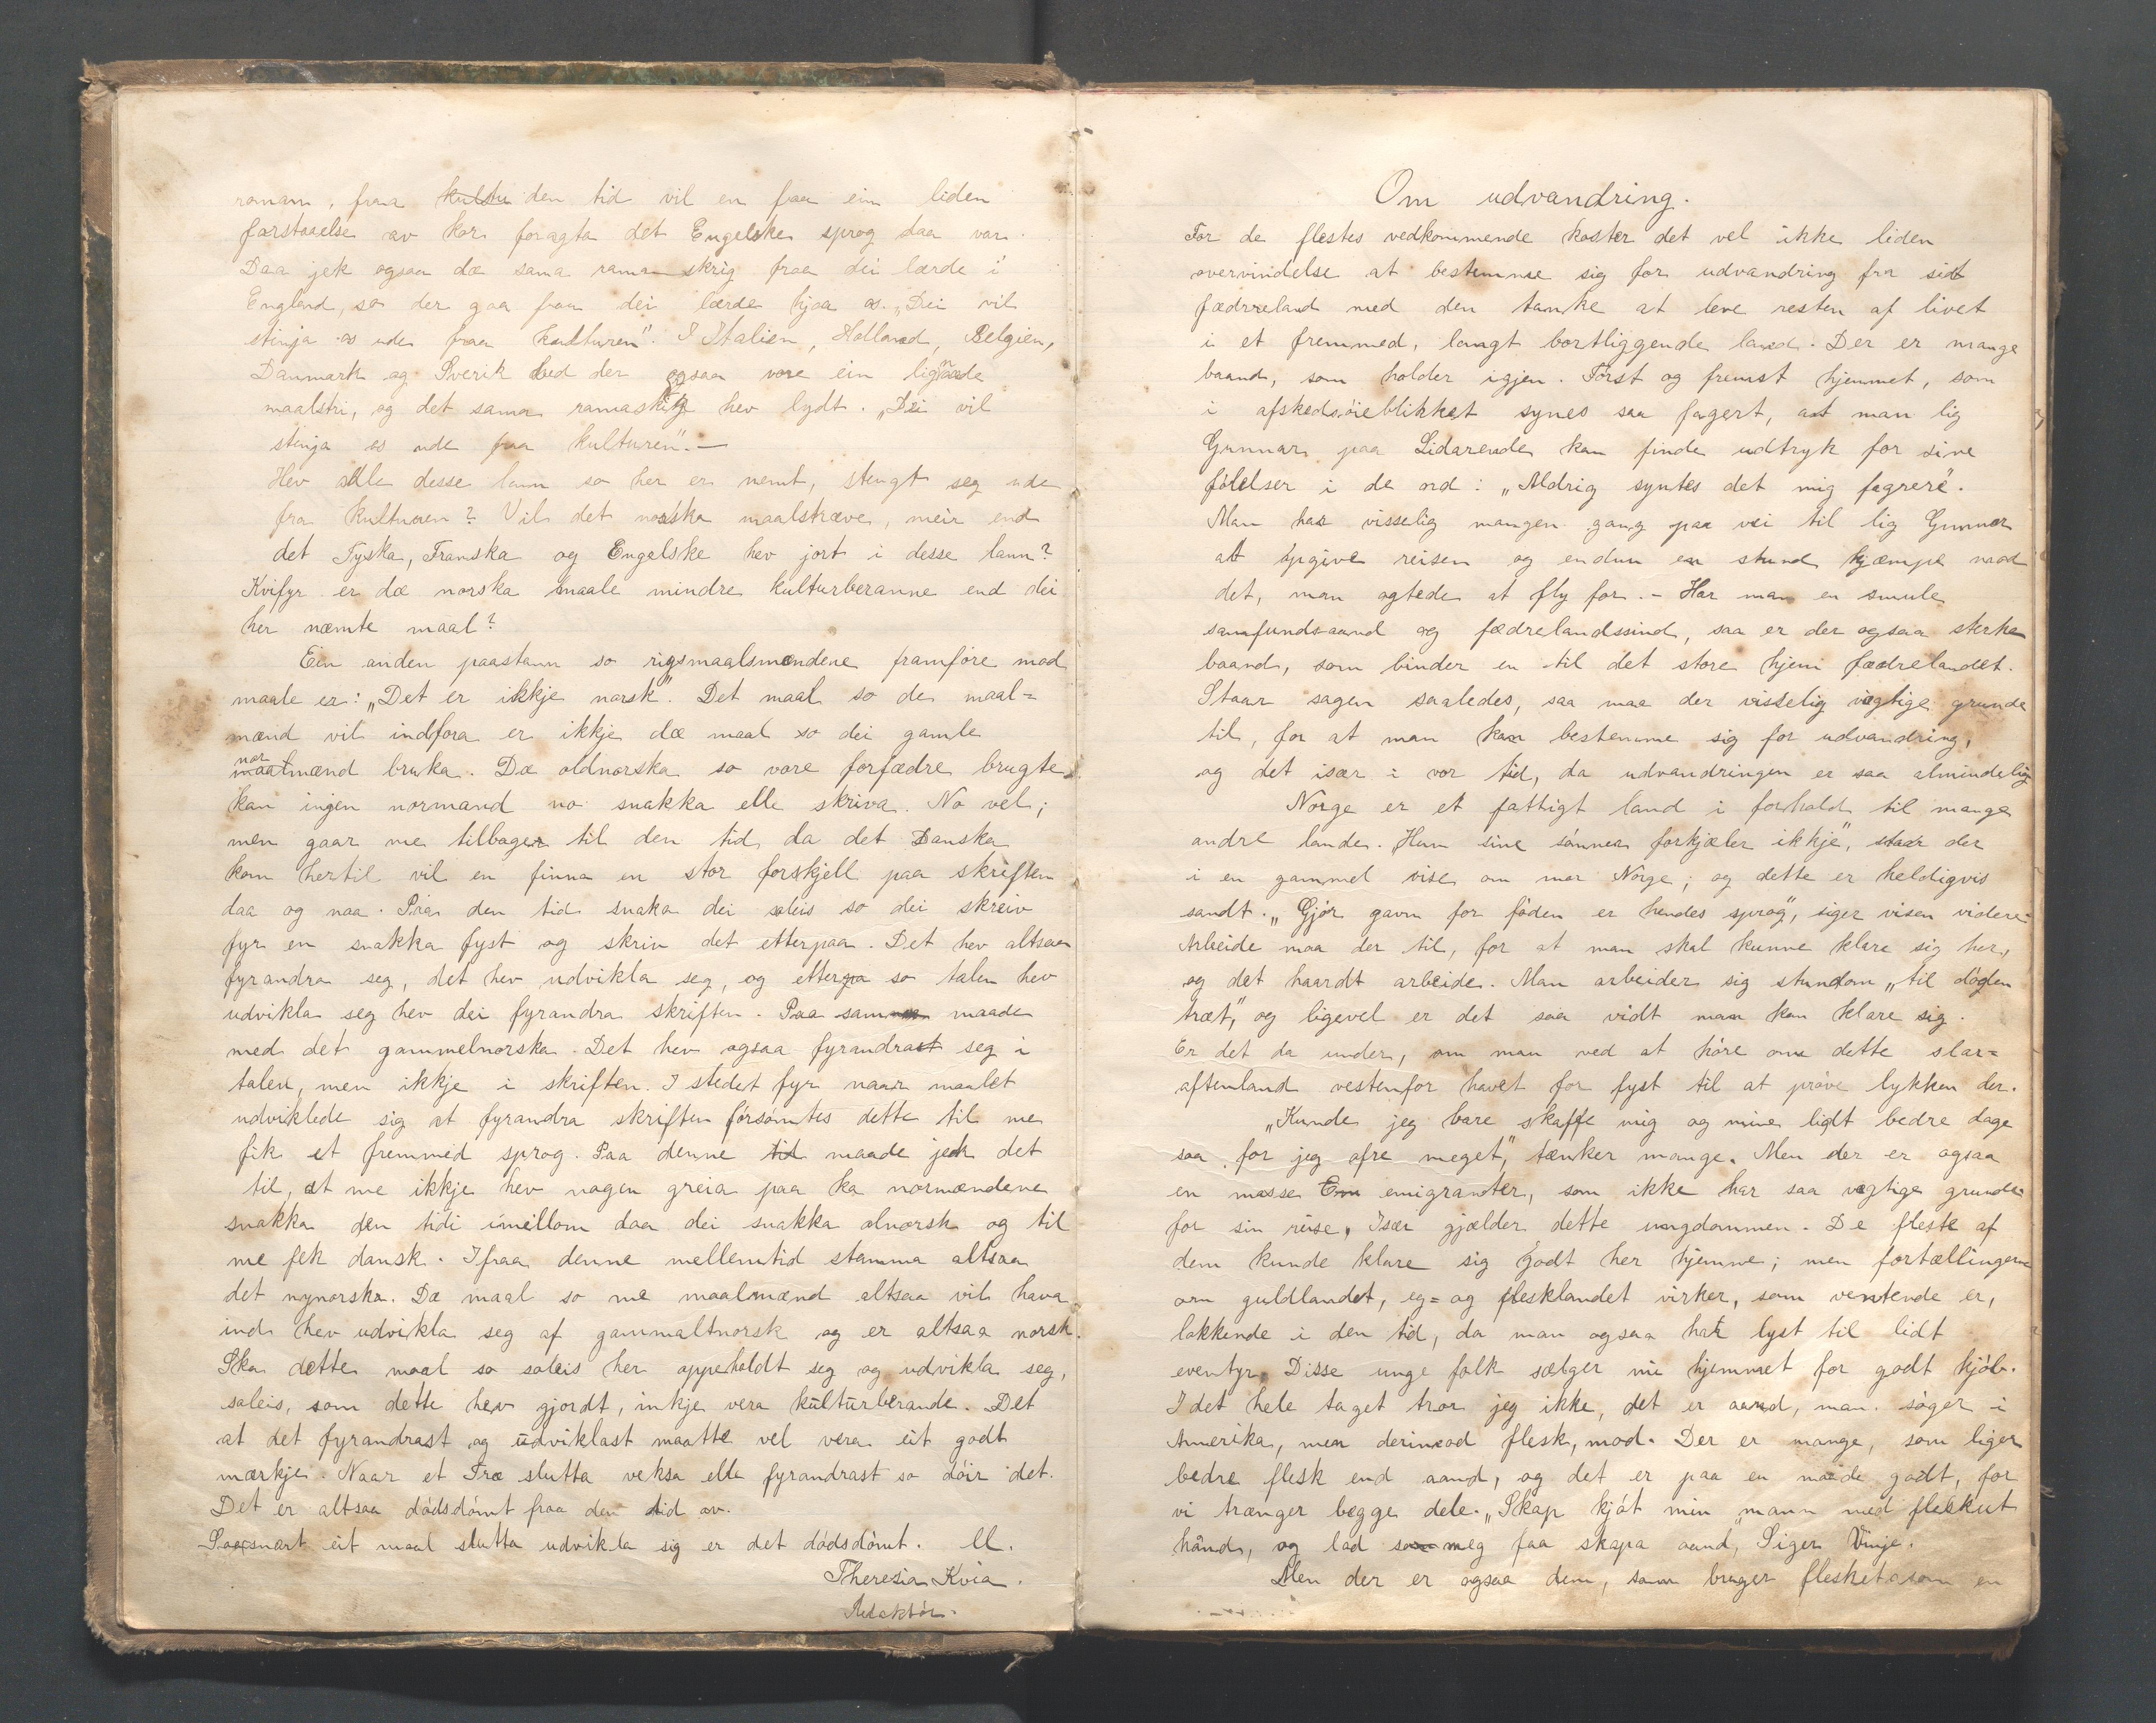 roman, fraa kultu den tid vil en faa ein liden
forstaaelse av kor foragta det Engelske sprog daa var.
Daa jek ogsaa dæ sama ramanskrig fraa dei lærde i
England, so der gaa fraa dei lærde hjaa os. „Dei vil
stinja os ude fraa kulturen". I Italien, Holland, Belgien,
Danmark og Sverik hed der ogsaa vore ein lignade
maalstri, og det sama ramaskrig hev lydt. „Dei vil
stinja os ude fraa kulturen". —
Hev alle desse lann so her er nemt, stengt seg ude
fra kulturen? Vil det norska maalstræve, meir end
det Tyska, Franska og Engelske hev jort i desse lann?
Kvifyr er dæ norska maale mindre kulturberanne end dei
her næmte maal?
Ein anden paastann so rigsmaalsmændene framføre mod
maale er: „Det er ikkje norsk". Det maal so de maal=
mænd vil indføra er ikkje dæ maal so dei gamle
nor maalmænd bruka. Dæ oldnorska so vore forfædre brugte
kan ingen normand no snakka elle skriva. No vel;
men gaar me tilbager til den tid da det Danska
kom hertil vil en finna en stor forskjell paa skriften
daa og naa. Paa den tid snaka dei soleis so dei skreiv
fyr en snakka fyst og skriv det etterpaa. Det hev altsaa
fyrandra seg, det hev udvikla seg, og etterpa so talen hev
udvikla seg hev dei fyrandra skriften. Paa samme maade
med det gammelnorska. Det hev ogsaa fyrandrast seg i
talen, men ikkje i skriften. I stedet fyr naar maalet
udviklede sig at fyrandra skriften forsømtes dette til me
fik et fremmed sprog. Paa denne tid maade jek det
til, at me ikkje hev nogen greia paa ka normændene
snakka den tidi imillom daa dei snakka olnorsk og til
me fek dansk. Ifraa denne mellemtid stamma altsaa
det nynorska. Dæ maal so me maalmænd altsaa vil hava
ind hev udvikla seg af gammaltnorsk og er altsaa norsk.
Ska dette maal so soleis her oppeholdt seg og udvikla seg,
soleis, som dette hev gjordt, inkje vera kulturberande. Det
at det fyrandrast og udviklast maatte vel vera eit godt
mærkje. Naar et Træ slutta veksa elle fyrandrast so døir det.
Det er altsaa dødsdømt fraa den tid av.
Saasnart eit maal slutta udvikla sig er det dødsdømt. M.
Theresia Kvia.
Redaktør.
Om udvandring.
For de flestes vedkommende koster det vel ikke liden
overvindelse at bestemme sig for udvandring fra sit
fædrreland med den tanke at leve resten af livet
i et fremmed, langt bortliggende land. Der er mange
baand, som holder igjen. Først og fremst hjemmet, som
i afskedsøieblikket synes saa fagert, at man lig
Gunnar paa Lidarende kan finde udtryk for sine
følelser i de ord: „Aldrig syntes det mig fagrere".
Man har visselig mangen gang paa vei til lig Gunnar
at opgive reisen og endnu en stund kjæmpe mod
det, man agtede at fly for. – Har man en smule
samfundsaand og fædrelandssind, saa er der ogsaa sterke
baand, som binder en til det store hjem fædrelandet.
Staar sagen saaledes, saa maa der visselig vegtige grunde
til, for at man kan bestemme sig for udvandring,
og det især i vor tid, da udvandringen er saa almindelig
Norge er et fattigt land i forhold til mange
andre lande. „Hun sine sønner forkjæler ikkje", staar der
i en gammel vise om mor Norge; og dette er heldigvis
sandt. „Gjør gavn for føden er hendes sprog", siger visen videre.
Arbeide maa der til, for at man skal kunne klare sig her,
og det haardt arbeide. Man arbeider sig stundom „til døden
træt", og ligevel er det saa vidt man kan klare sig.
Er det da under, om man ved at høre om dette slar=
affenland vestenfor havet for fyst til at prøve lykken der.
„Kunde jeg bare skaffe mig og mine lidt bedre dage
saa for jeg ofre meget", tænker mange. Men der er ogsaa
en masse Em emigranter, som ikke har saa vegtige grunde
for sin reise. Især gjælder dette ungdommen. De fleste af
dem kunde klare sig godt her hjemme; men fortællingerne
om guldlandet, eg= og flesklandet virker, som ventende er,
lokkende i den tid, da man ogsaa har lyst til lidt
eventyr. Disse unge folk sælger nu hjemmet for godt kjøb.
I det hele taget tror jeg ikke, det er aand, man søger i
Amerika, men derimod flesk, mod. Der er mange, som liger
bedre flesk end aand, og det er paa en maade godt, for
vi trænger begge dele. „Skap kjøt min mann med fleskut
hånd, og lad som meg faa skapa aand, Siger Vinje.
Men der er ogsaa dem, som bruger flesket som en